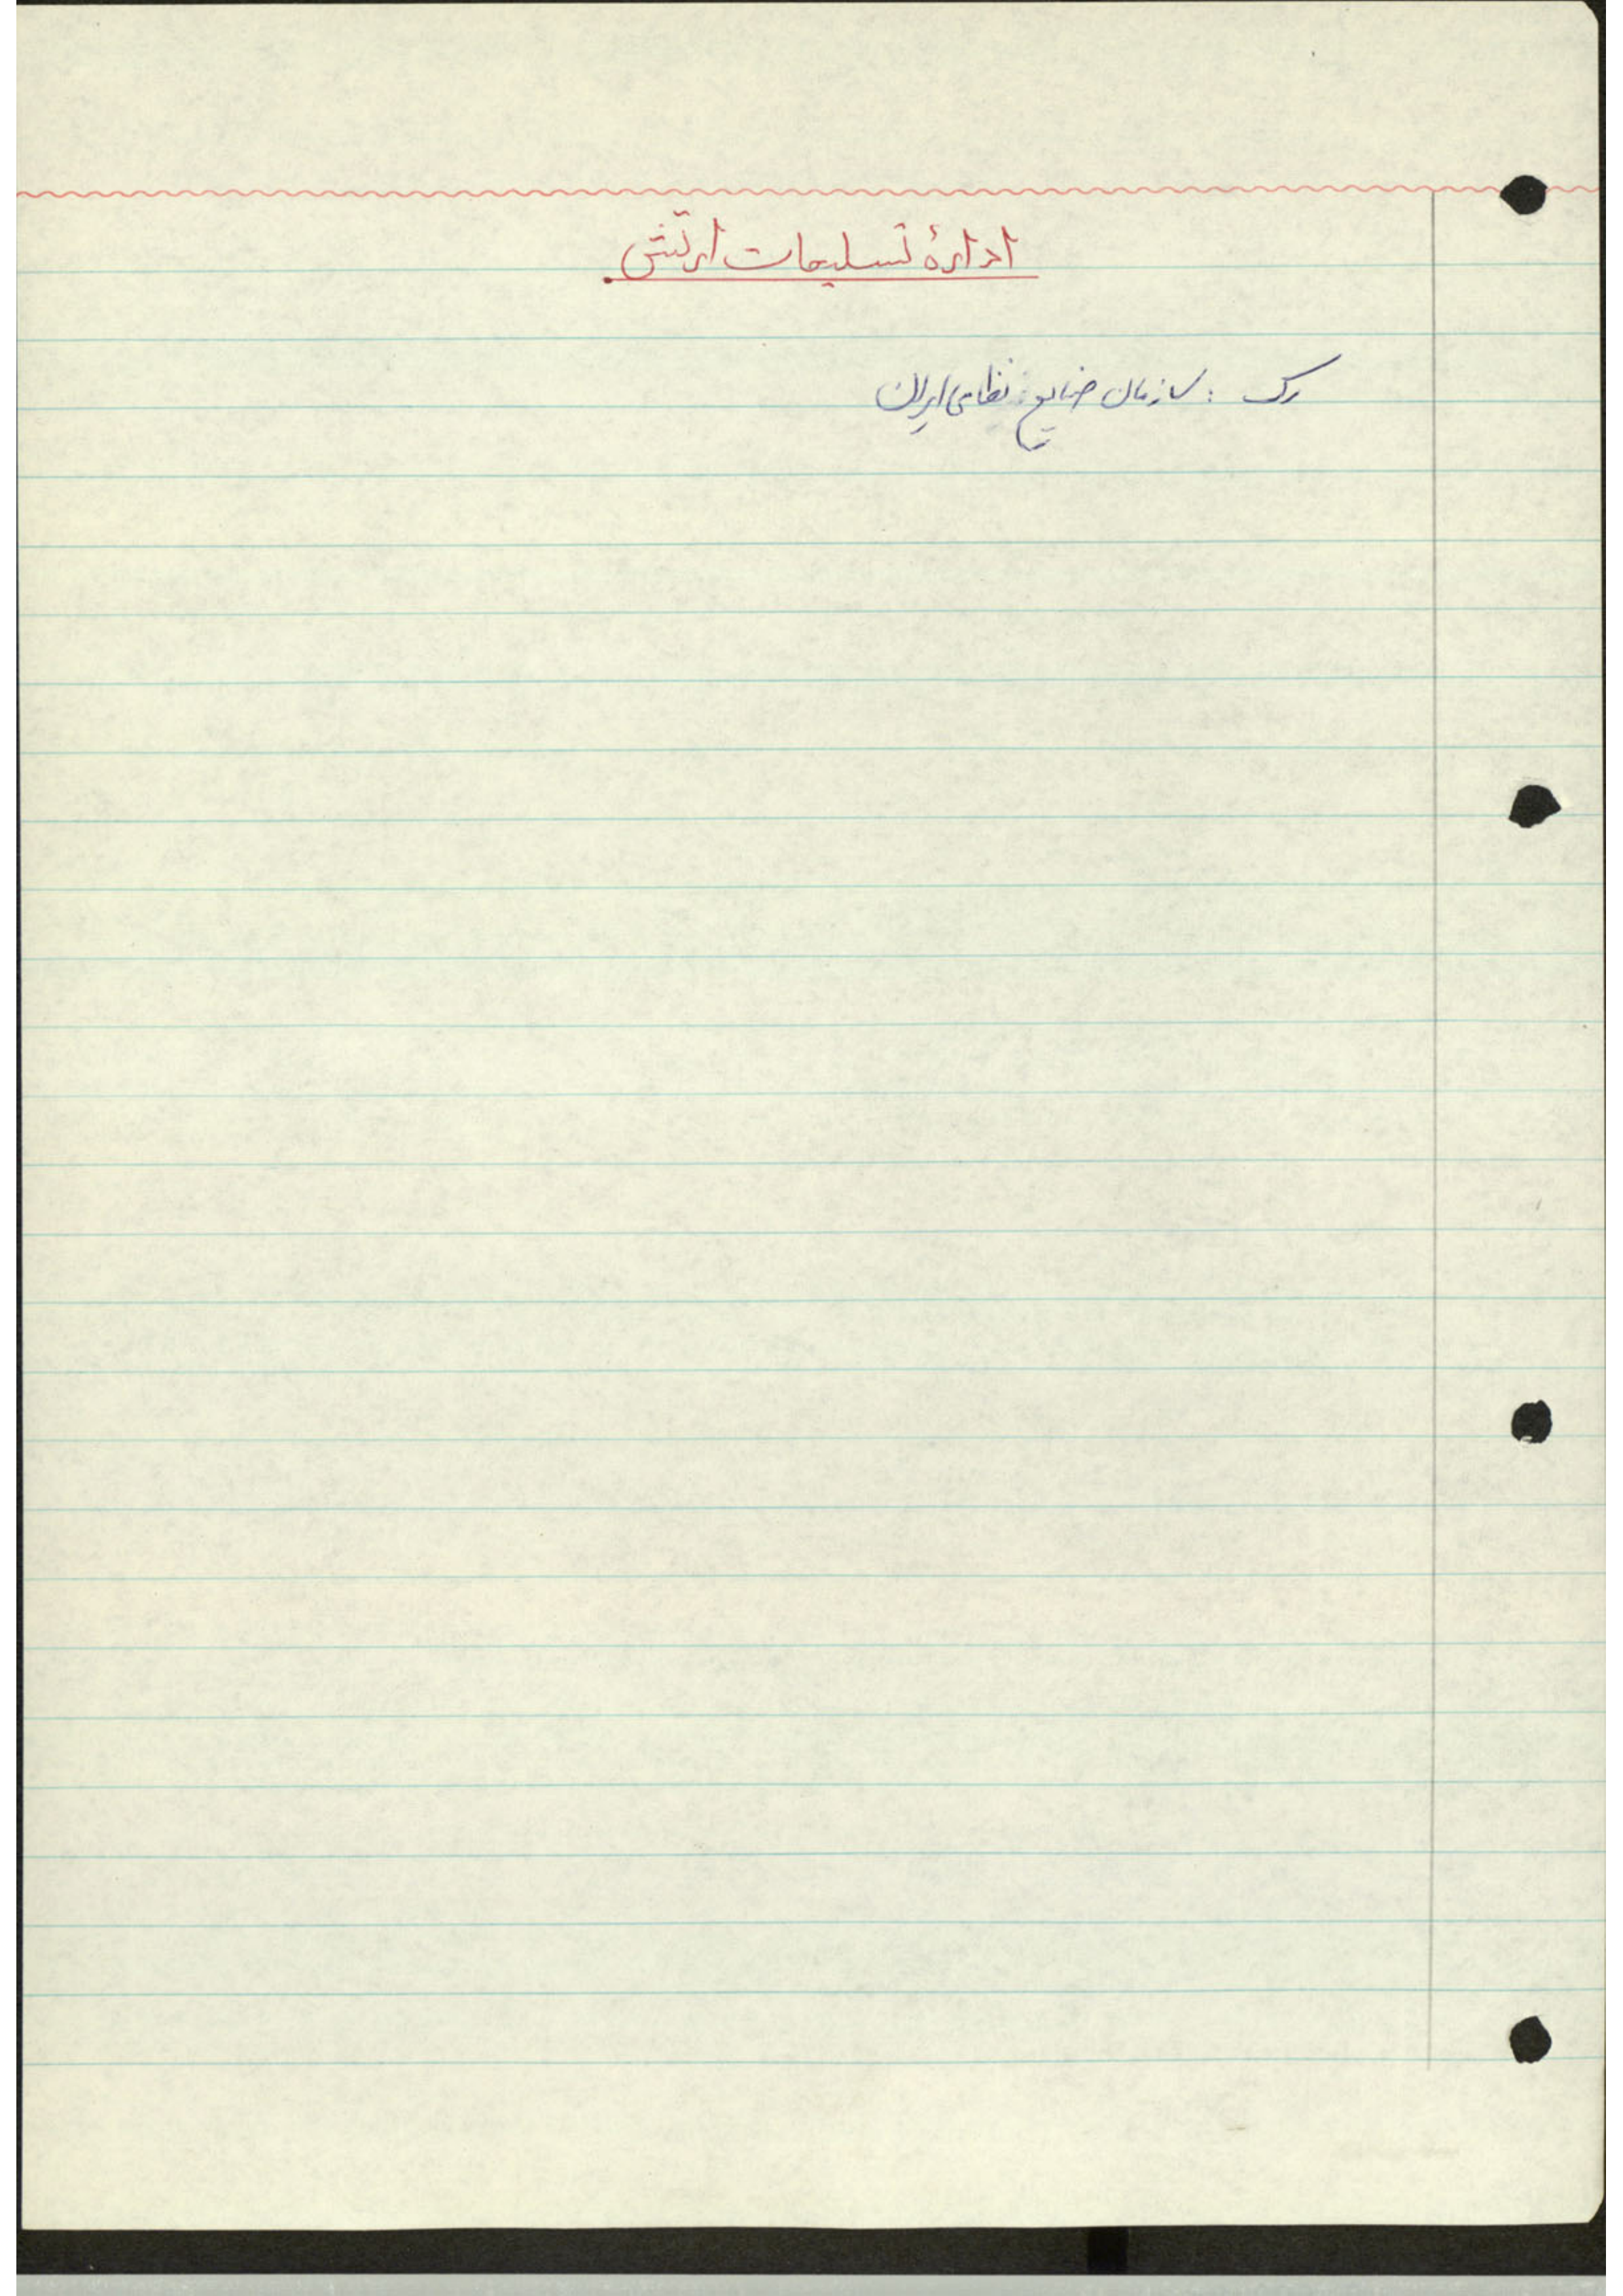 ادارهٔ تسلیحات ارتش.
رک : سازمان صنایع نظامی ایران